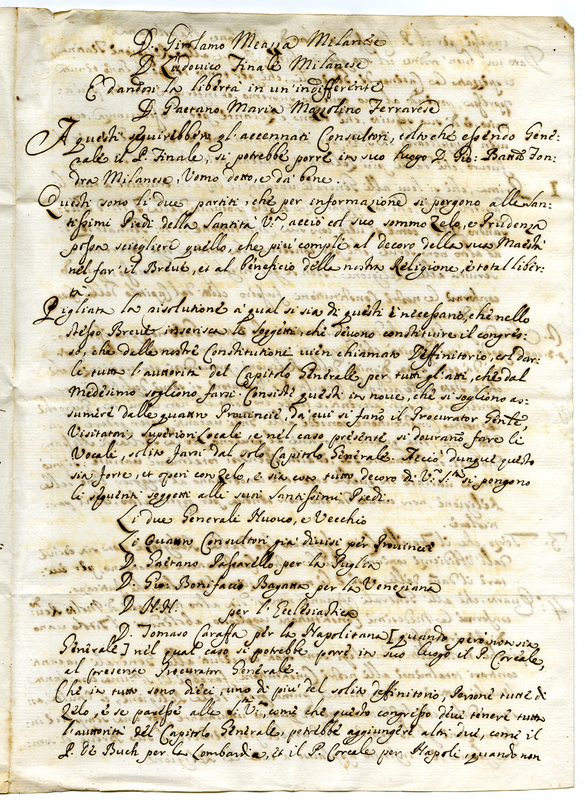 D. Girolamo Meazza Milanese
D. Ludovico Finale Milanese
E dandosi la libertà in un'indifferente
D. Gaetano Maria Mazzolino Ferrarese
A questi seguirebbero gl'accennati Consultori, colto che essendo Gene-
rale il P. Finale, si potrebbe porre in suo luogo D. Gio: Batta Fon-
dra Milanese, Uomo dotto, e da bene.
Questi sono li due partiti, che per informazione si porgono alli San-
tissimi Piedi della Santità Va acciò col suo sommo Zelo, e Prudenza
possa sciegliere quello, che più comple al decoro della sua Maestà
nel far' il Breve, et al beneficio della nostra Religione, e total liber-
tà
Pigliata la risolutione à qual si sia di questi è necessario, che nello
stesso Breve inserisca li soggetti, che devono constituire il congres-
so, che dalle nostre Constitutioni vien chiamato Deffinitorio, col dar-
le tutta l'autorità del Capitolo Generale per tutti gl'atti, che dal
Medesimo sogliono farsi. Consiste questi in nove, che si sogliono as-
sumere dalle quattro Provincie, da cui si fanno il Procurator Genle,
Visitatori, Superiori Locali, e nel caso presente si dovranno fare li
Vocali, solito farsi dal solo Capitolo Generale. Acciò dunque questo
sia forte, et operi con Zelo, e sia con tutto decoro di Va Sta si pongono
li seguenti soggetti alli suoi Santissimi Piedi.
Li due Generali Nuovo, e Vecchio
Li Quattro Consultori già divisi per Provincie
D. Gaetano Passarello per la Puglia
D. Gio: Bonifacio Bagatta per la Veneziana
D. N.N. per l'Ecclesiastica
D. Tomaso Caraffa per la Napolitana [quando però non sia
Generale] nel qual caso si potrebbe porre in suo luogo il P. Coreale,
al presente Procurator Generale.
Che in tutto sono dieci, uno di più del solito deffinitorio, Persone tutte di
Zelo, e se paresse alla Sta Va, come che questo congresso deve tenere tutta
l'autorità del Capitolo Generale, potrebbe aggiungere altri due, come il
P. de Buch per la Lombardia, et il P. Coreale per Napoli, quando non